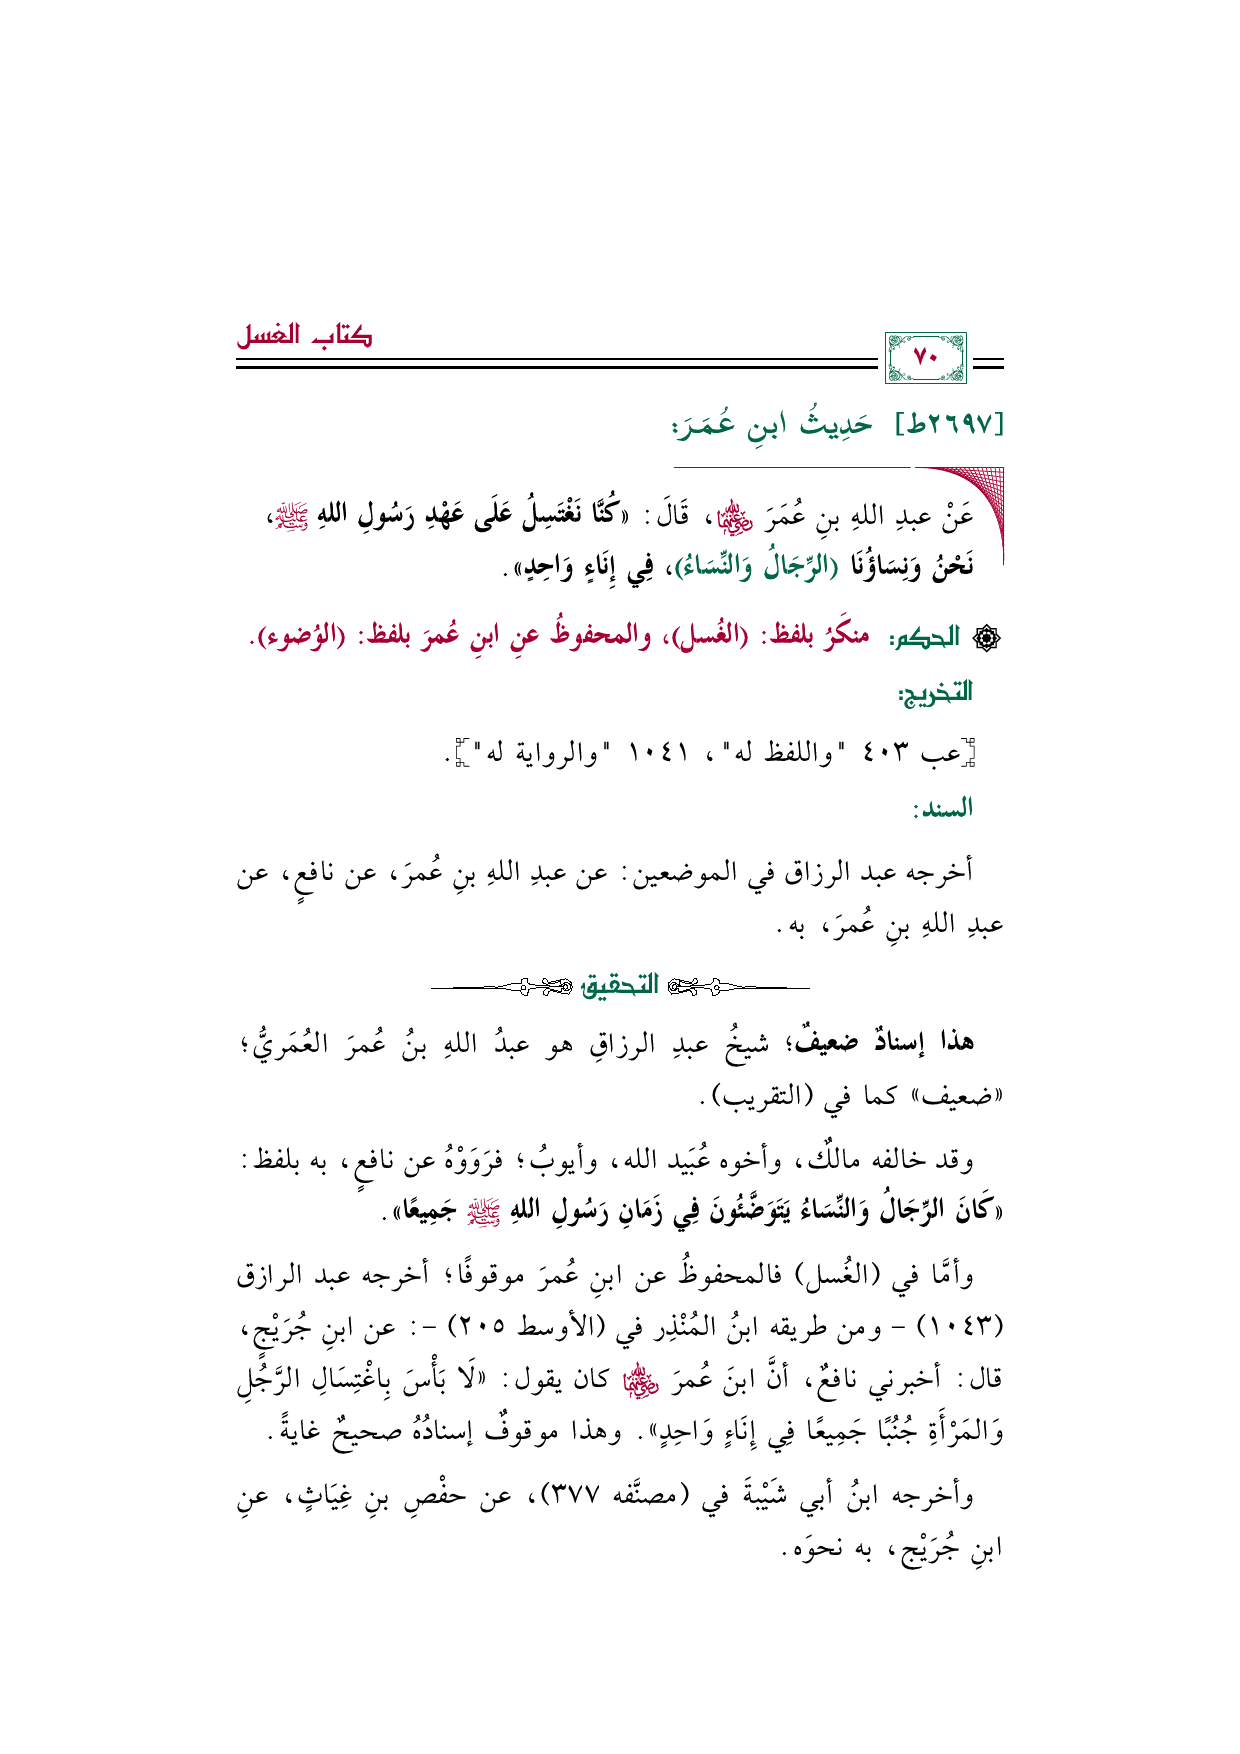 كتاب الغسل
٧٠
[٢٦٩٧ط] حَدِيثُ ابنِ عُمَرَ:
عَنْ عبدِ اللهِ بنِ عُمَرَ رضي الله عنهما، قَالَ: «كُنَّا نَغْتَسِلُ عَلَى عَهْدِ رَسُولِ اللهِ ﷺ،
نَحْنُ وَنِسَاؤُنَا (الرِّجَالُ وَالنِّسَاءُ)، فِي إِنَاءٍ وَاحِدٍ».
۞ الحكم: منكَرُ بلفظ: (الغُسل)، والمحفوظُ عنِ ابنِ عُمرَ بلفظ: (الوُضوء).
التخريج:
[عب ٤٠٣ "واللفظ له"، ١٠٤١ "والرواية له"].
السند:
أخرجه عبد الرزاق في الموضعين: عن عبدِ اللهِ بنِ عُمرَ، عن نافعٍ، عن
عبدِ اللهِ بنِ عُمرَ، به.
التحقيق
هذا إسنادٌ ضعيفٌ؛ شيخُ عبدِ الرزاقِ هو عبدُ اللهِ بنُ عُمرَ العُمَريُّ؛
«ضعيف» كما في (التقريب).
وقد خالفه مالكٌ، وأخوه عُبَيد الله، وأيوبُ؛ فرَوَوْهُ عن نافعٍ، به بلفظ:
«كَانَ الرِّجَالُ وَالنِّسَاءُ يَتَوَضَّئُونَ فِي زَمَانِ رَسُولِ اللهِ ﷺ جَمِيعًا».
وأمَّا في (الغُسل) فالمحفوظُ عن ابنِ عُمرَ موقوفًا؛ أخرجه عبد الرازق
(١٠٤٣) - ومن طريقه ابنُ المُنْذِر في (الأوسط ٢٠٥) -: عن ابنِ جُرَيْجٍ،
قال: أخبرني نافعٌ، أنَّ ابنَ عُمرَ رضي الله عنهما كان يقول: «لَا بَأْسَ بِاغْتِسَالِ الرَّجُلِ
وَالمَرْأَةِ جُنُبًا جَمِيعًا فِي إِنَاءٍ وَاحِدٍ». وهذا موقوفٌ إسنادُهُ صحيحٌ غايةً.
وأخرجه ابنُ أبي شَيْبةَ في (مصنَّفه ٣٧٧)، عن حفْصِ بنِ غِيَاثٍ، عنِ
ابنِ جُرَيْج، به نحوَه.